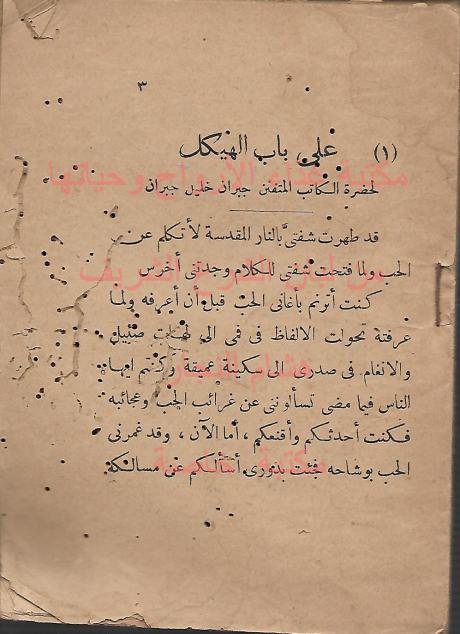 ٣
(١) على باب الهيكل
لحضرة الكاتب المتفنن جبران خليل جبران
قد طهرت شفتيَّ بالنار المقدسة لأتكلم عن
الحب ولما فتحت شفتي للكلام وجدتني أخرس
كنت أترنم بأغاني الحب قبل أن أعرفه ولما
عرفتة تحولت الالفاظ في فمي الى لهاث ضئيل
والانغام في صدري الى سكينة عميقة وكنتم ايها
الناس فيما مضى تسألونني عن غرائب الحب وعجائبه
فكنت أحدثكم وأقنعكم ، أما الآن ، وقد غمرني
الحب بوشاحه فجئت بدوري أسألكم عن مسالكه
مكتبة غذاء الارواح وحياتها
من لبنان
مكتبة